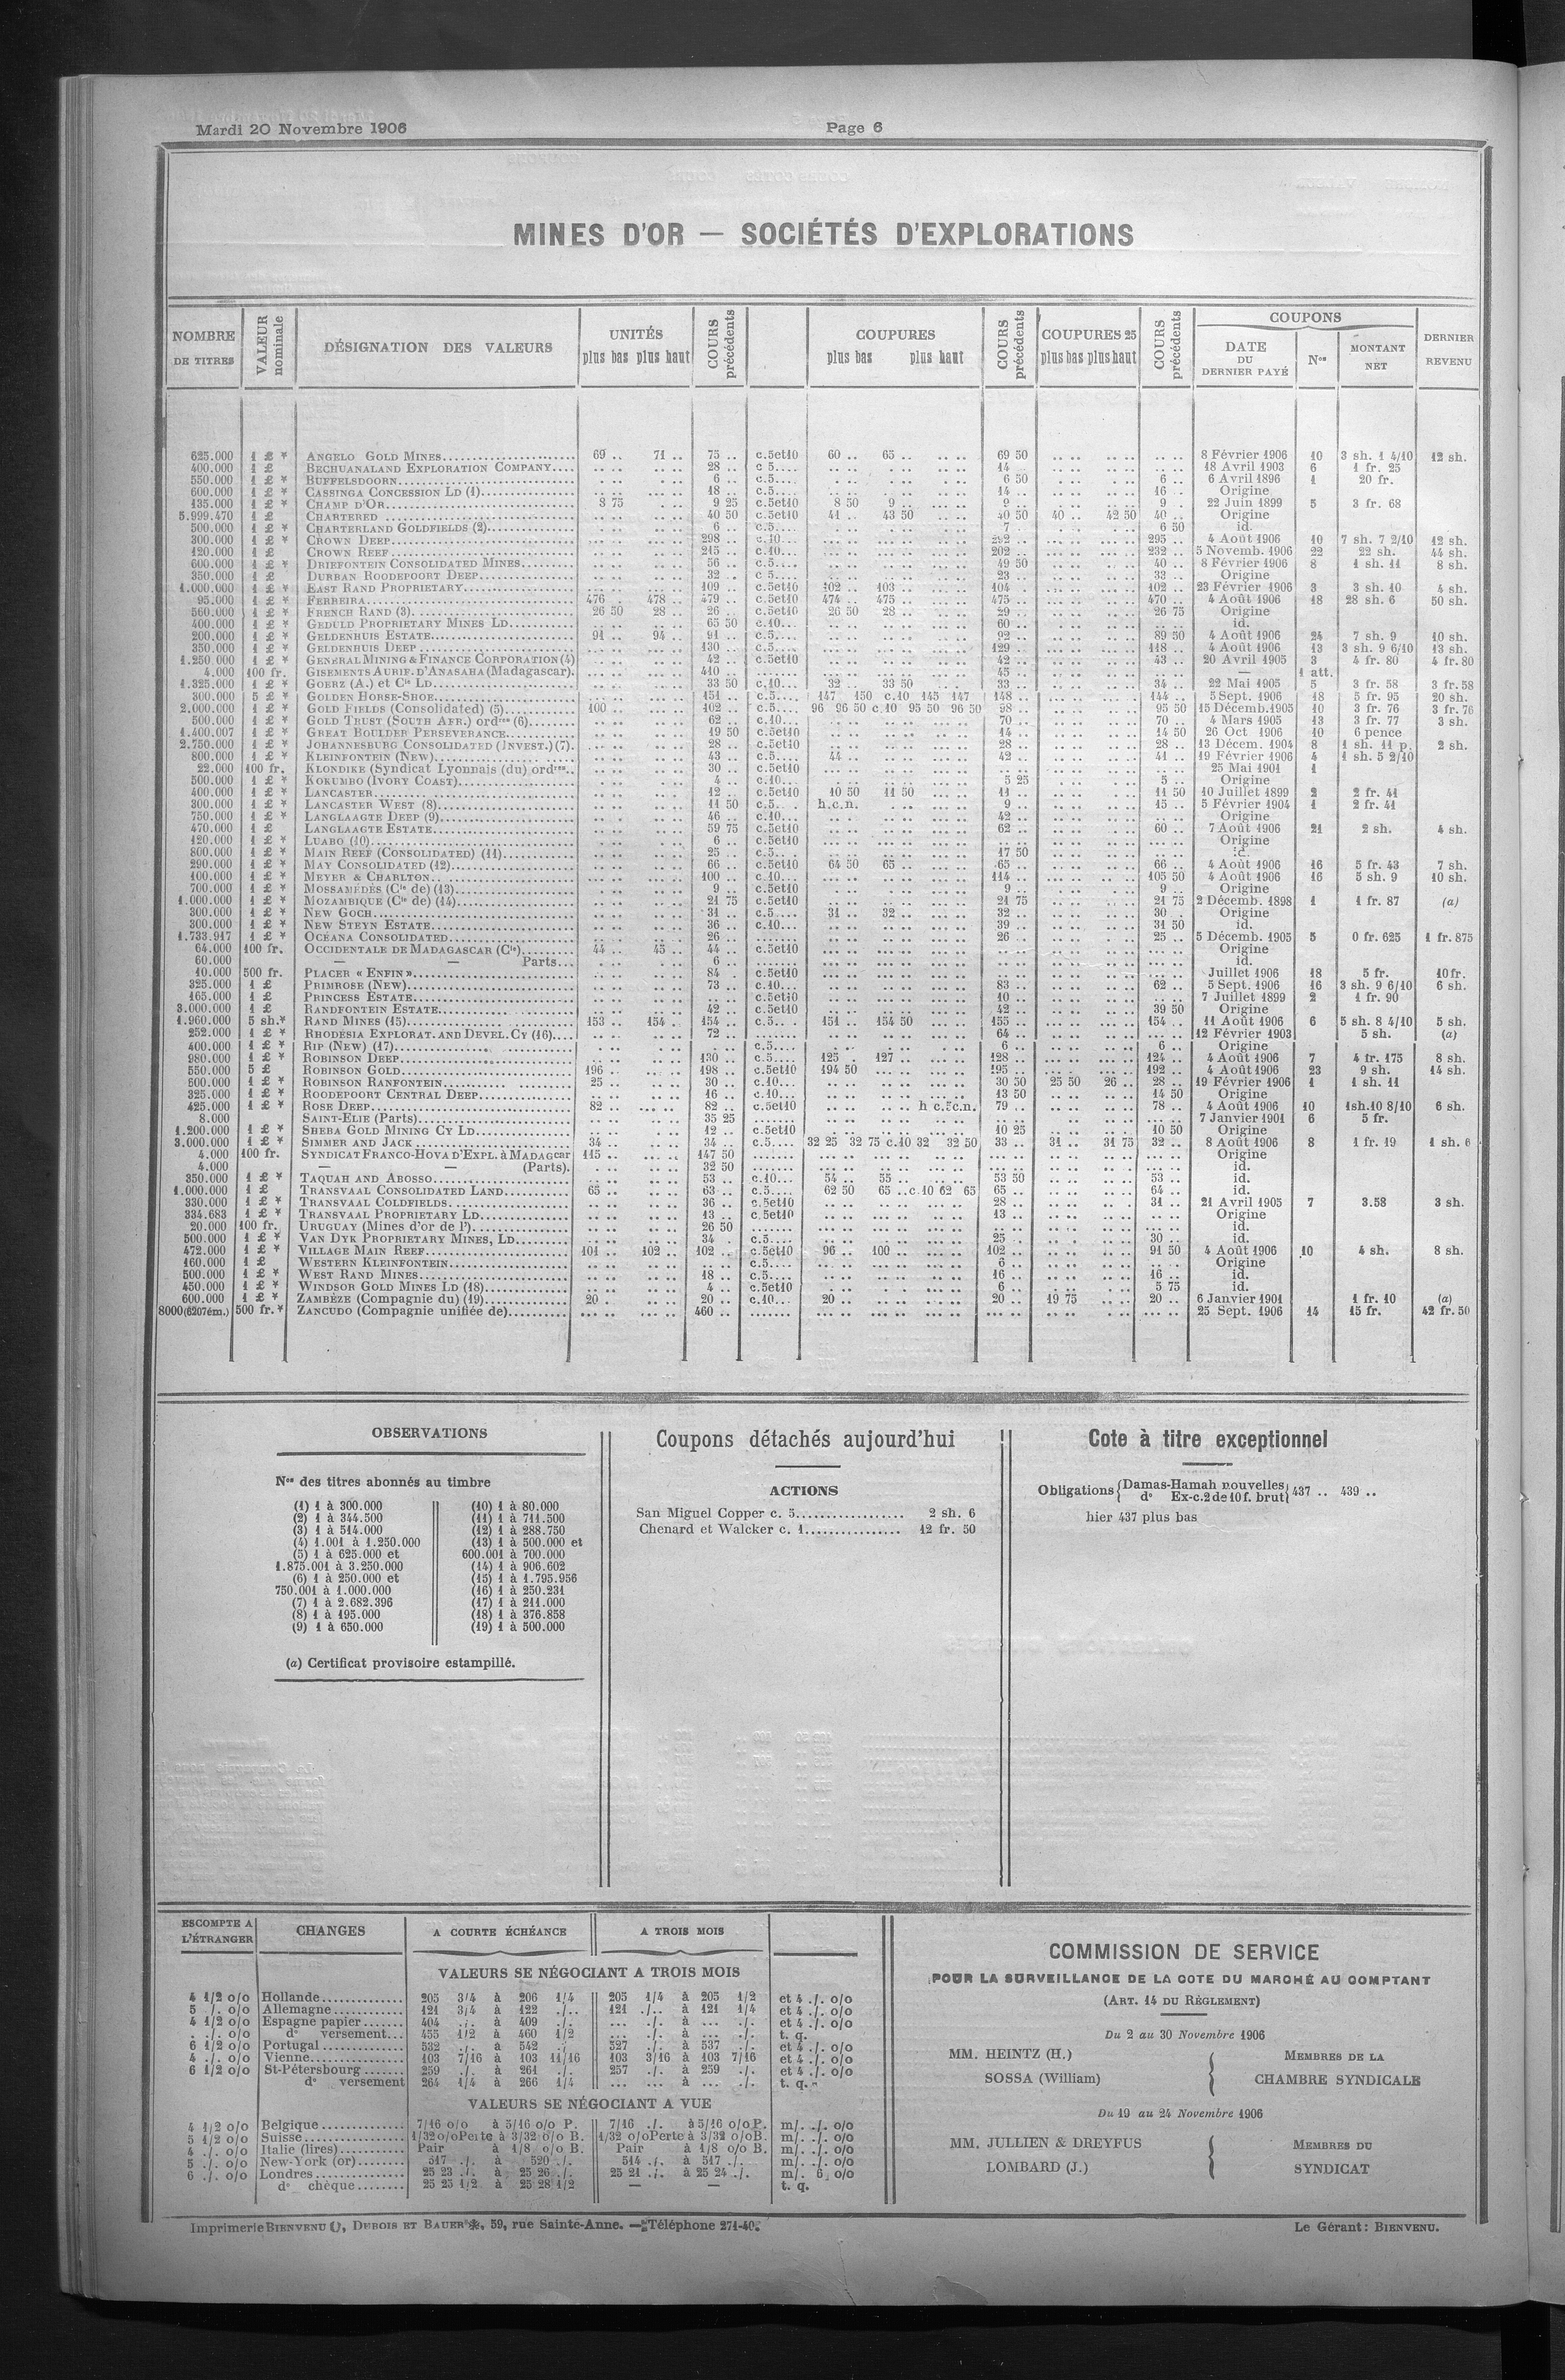 Mardi 20 Novembre 1906
Page 6
MINES D'OR — SOCIÉTÉS D'EXPLORATIONS
NOMBRE DE TITRES | VALEUR nominale | DÉSIGNATION DES VALEURS | UNITÉS plus bas plus haut | COURS précédents | COUPURES plus bas plus haut | COURS précédents | COUPURES 25 plus bas plus haut | COURS précédents | COUPONS DATE DU DERNIER PAYÉ | Nos | MONTANT NET | DERNIER REVENU
625.000 1 £ * ANGELO GOLD MINES 69 .. 71 .. 75 .. c.5et10 60 .. 65 .. 69 50 8 Février 1906 10 3 sh. 1 4/10 12 sh.
400.000 1 £ BECHUANALAND EXPLORATION COMPANY 28 .. c 5 14 .. 18 Avril 1903 6 1 fr. 25
550.000 1 £ * BUFFELSDOORN 6 .. c.5 6 50 6 .. 6 Avril 1896 1 20 fr.
600.000 1 £ * CASSINGA CONCESSION LD (1) 18 .. c.5 14 .. 16 .. Origine
135.000 1 £ * CHAMP D'OR 8 75 9 25 c.5et10 8 50 9 .. 9 .. 9 .. 22 Juin 1899 5 3 fr. 68
5.999.470 1 £ CHARTERED 40 50 c.5et10 41 .. 43 50 40 50 40 .. 42 50 40 .. Origine
500.000 1 £ * CHARTERLAND GOLDFIELDS (2) 6 .. c.5 7 .. 6 50 id.
300.000 1 £ * CROWN DEEP 298 .. c.10 295 .. 4 Août 1906 10 7 sh. 7 2/10 12 sh.
120.000 1 £ CROWN REEF 215 .. c.10 202 .. 232 .. 5 Novemb. 1906 22 22 sh. 44 sh.
600.000 1 £ * DRIEFONTEIN CONSOLIDATED MINES 56 .. c.5 49 50 40 .. 8 Février 1906 8 1 sh. 11 8 sh.
350.000 1 £ DURBAN ROODEPOORT DEEP 32 .. c 5 23 .. 33 .. Origine
1.000.000 1 £ * EAST RAND PROPRIETARY 109 .. c.5et10 102 .. 103 .. 104 .. 102 .. 23 Février 1906 3 3 sh. 10 4 sh.
95.000 1 £ * FERREIRA 476 .. 478 .. 479 .. c.5et10 474 .. 475 .. 475 .. 470 .. 4 Août 1906 18 28 sh. 6 50 sh.
560.000 1 £ * FRENCH RAND (3) 26 50 28 .. 26 .. c.5et10 26 50 28 .. 29 .. 26 75 Origine
400.000 1 £ * GEDULD PROPRIETARY MINES LD 65 50 c.10 60 .. id.
200.000 1 £ * GELDENHUIS ESTATE 91 .. 94 .. 91 .. c.5 92 .. 89 50 4 Août 1906 24 7 sh. 9 10 sh.
350.000 1 £ * GELDENHUIS DEEP 130 .. c.5 129 .. 118 .. 4 Août 1906 13 3 sh. 9 6/10 13 sh.
1.250.000 1 £ * GENERAL MINING & FINANCE CORPORATION (4) 42 .. c.5et10 42 .. 43 .. 20 Avril 1905 3 4 fr. 80 4 fr. 80
4.000 100 fr. GISEMENTS AURIF. D'ANASAHA (Madagascar). 410 .. 45 .. — 1 att.
1.325.000 1 £ * GOERZ (A.) et Cie LD 33 50 c.10 32 .. 33 50 33 .. 34 .. 22 Mai 1905 5 3 fr. 58 3 fr. 58
300.000 5 £ * GOLDEN HORSE-SHOE 151 .. c.5 147 150 c.10 145 147 148 .. 144 .. 5 Sept. 1906 18 5 fr. 95 20 sh.
2.000.000 1 £ * GOLD FIELDS (Consolidated) (5) 100 .. 102 .. c.5 96 96 50 c.10 95 50 96 50 98 .. 95 50 15 Décemb. 1905 10 3 fr. 76 3 fr. 76
500.000 1 £ * GOLD TRUST (SOUTH AFR.) ordres (6) 62 .. c.10 70 .. 70 .. 4 Mars 1905 13 3 fr. 77 3 sh.
1.400.007 1 £ * GREAT BOULDER PERSEVERANCE 19 50 c.5et10 14 .. 14 50 26 Oct 1906 10 6 pence
2.750.000 1 £ * JOHANNESBURG CONSOLIDATED (INVEST.) (7). 28 .. c.5et10 28 .. 28 .. 13 Décem. 1904 8 1 sh. 11 p. 2 sh.
800.000 1 £ * KLEINFONTEIN (New) 43 .. c.5 44 .. 42 .. 41 .. 19 Février 1906 4 1 sh. 5 2/10
22.000 100 fr. KLONDIKE (Syndicat Lyonnais (du) ordres 30 .. c.5et10 25 Mai 1901 1
500.000 1 £ * KOKUMBO (IVORY COAST) 4 .. c.10 5 25 5 .. Origine
400.000 1 £ * LANCASTER 12 .. c.5et10 10 50 11 50 11 .. 11 50 10 Juillet 1899 2 2 fr. 41
300.000 1 £ * LANCASTER WEST (8) 11 50 c.5 h.c.n. 9 .. 15 .. 5 Février 1904 1 2 fr. 41
750.000 1 £ * LANGLAAGTE DEEP (9) 46 .. c.10 42 .. Origine
470.000 1 £ LANGLAAGTE ESTATE 59 75 c.5et10 62 .. 60 .. 7 Août 1906 21 2 sh. 4 sh.
120.000 1 £ * LUABO (10) 6 .. c.5et10 Origine
800.000 1 £ * MAIN REEF (CONSOLIDATED) (11) 25 .. c.5 17 50 id.
290.000 1 £ * MAY CONSOLIDATED (12) 66 .. c.5et10 64 50 65 .. 65 .. 66 .. 4 Août 1906 16 5 fr. 43 7 sh.
100.000 1 £ * MEYER & CHARLTON 100 .. c.10 114 .. 105 50 4 Août 1906 16 5 sh. 9 10 sh.
700.000 1 £ * MOSSAMÉDÈS (Cie de) (13) 9 .. c.5et10 9 .. 9 .. Origine
1.000.000 1 £ * MOZAMBIQUE (Cie de) (14) 21 75 c.5et10 21 75 21 75 2 Décemb. 1898 1 1 fr. 87 (a)
300.000 1 £ * NEW GOCH 31 .. c.5 31 .. 32 .. 32 .. 30 . Origine
300.000 1 £ * NEW STEYN ESTATE 36 .. c.10 39 .. 31 50 id.
1.733.917 1 £ * OCEANA CONSOLIDATED 26 .. 26 .. 25 .. 5 Décemb. 1905 5 0 fr. 625 1 fr. 875
64.000 100 fr. OCCIDENTALE DE MADAGASCAR (Cie) 44 .. 45 .. 44 .. c.5et10 Origine
60.000 — — Parts 6 .. id.
10.000 500 fr. PLACER « ENFIN » 84 . c.5et10 Juillet 1906 18 5 fr. 10 fr.
325.000 1 £ PRIMROSE (NEW) 73 .. c.10 83 .. 62 .. 5 Sept. 1906 16 3 sh. 9 6/10 6 sh.
165.000 1 £ PRINCESS ESTATE c.5et10 10 .. 7 Juillet 1899 2 1 fr. 90
3.000.000 1 £ RANDFONTEIN ESTATE 42 .. c.5et10 42 .. 39 50 Origine
1.960.000 5 sh.* RAND MINES (15) 153 .. 154 .. 154 .. c.5 151 .. 154 50 155 .. 154 .. 11 Août 1906 6 5 sh. 8 4/10 5 sh.
252.000 1 £ * RHODESIA EXPLORAT. AND DEVEL. CY (16) 72 .. 64 .. 12 Février 1903 5 sh. (a)
400.000 1 £ * RIP (NEW) (17) c.5 6 .. 6 .. Origine
980.000 1 £ * ROBINSON DEEP 130 .. c.5 125 . 127 .. 128 .. 124 .. 4 Août 1906 7 4 fr. 175 8 sh.
550.000 5 £ ROBINSON GOLD 196 .. 198 .. c.5et10 194 50 195 .. 192 .. 4 Août 1906 23 9 sh. 14 sh.
600.000 1 £ * ROBINSON RANFONTEIN 25 .. 30 .. c.10 30 50 25 50 26 .. 28 .. 19 Février 1906 1 1 sh. 11
325.000 1 £ * ROODEPOORT CENTRAL DEEP 16 .. c.10 13 50 14 50 Origine
425.000 1 £ * ROSE DEEP 82 .. 82 .. c.5et10 h c.5c.n. 79 .. 78 .. 4 Août 1906 10 1sh.10 8/10 6 sh.
8.000 SAINT-ELIE (Parts) 35 25 7 Janvier 1901 6 5 fr.
1.200.000 1 £ * SHEBA GOLD MINING CY LD 12 .. c.5et10 10 25 10 50 Origine
3.000.000 1 £ * SIMMER AND JACK 34 .. 34 .. c.5 32 25 32 75 c.10 32 32 50 33 .. 31 .. 31 75 32 .. 8 Août 1906 8 1 fr. 19 1 sh. 6
4.000 100 fr. SYNDICAT FRANCO-HOVA D'EXPL. à MADAGcar 115 .. 147 50 Origine
4.000 — — (Parts). 32 50 id.
350.000 1 £ * TAQUAH AND ABOSSO 53 .. c.10 54 .. 55 .. 53 50 53 .. id.
1.000.000 1 £ TRANSVAAL CONSOLIDATED LAND 65 .. 63 .. c.5 62 50 65 .. c.10 62 65 65 .. 64 .. id.
330.000 1 £ * TRANSVAAL COLDFIELDS 36 .. c.5et10 28 .. 31 .. 21 Avril 1905 7 3.58 3 sh.
334.683 1 £ * TRANSVAAL PROPRIETARY LD 13 .. c.5et10 13 .. Origine
20.000 100 fr. URUGUAY (Mines d'or de l') 26 50 id.
500.000 1 £ * VAN DYK PROPRIETARY MINES, LD 34 . c.5 25 .. 30 .. id.
472.000 1 £ * VILLAGE MAIN REEF 101 .. 102 .. 102 .. c.5et10 96 .. 100 .. 102 .. 91 50 4 Août 1906 10 4 sh. 8 sh.
160.000 1 £ WESTERN KLEINFONTEIN c.5 6 .. Origine
500.000 1 £ * WEST RAND MINES 18 .. c.5 16 .. 16 .. id.
450.000 1 £ * WINDSOR GOLD MINES LD (18) 4 .. c.5et10 6 .. 5 75 id.
600.000 1 £ * ZAMBÈZE (Compagnie du) (19) 20 .. 20 .. c.10 20 .. 20 .. 19 75 20 .. 6 Janvier 1901 1 fr. 10 (a)
8000(6207ém.) 500 fr.* ZANCUDO (Compagnie unifiée de) 460 .. 25 Sept. 1906 14 15 fr. 42 fr. 50
OBSERVATIONS
Nos des titres abonnés au timbre
(1) 1 à 300.000
(2) 1 à 344.500
(3) 1 à 514.000
(4) 1.001 à 1.250.000
(5) 1 à 625.000 et
1.875.001 à 3.250.000
(6) 1 à 250.000 et
750.001 à 1.000.000
(7) 1 à 2.682.396
(8) 1 à 195.000
(9) 1 à 650.000
(10) 1 à 80.000
(11) 1 à 711.500
(12) 1 à 288.750
(13) 1 à 500.000 et
600.001 à 700.000
(14) 1 à 906.602
(15) 1 à 1.795.956
(16) 1 à 250.231
(17) 1 à 211.000
(18) 1 à 376.858
(19) 1 à 500.000
(a) Certificat provisoire estampillé.
Coupons détachés aujourd'hui
ACTIONS
San Miguel Copper c. 5................. 2 sh. 6
Chenard et Walcker c. 1............... 12 fr. 50
Cote à titre exceptionnel
Obligations { Damas-Hamah nouvelles
do Ex-c.2 de 10 f. brut } 437 .. 439 ..
hier 437 plus bas
ESCOMPTE A L'ÉTRANGER | CHANGES | A COURTE ÉCHÉANCE | A TROIS MOIS
VALEURS SE NÉGOCIANT A TROIS MOIS
4 1/2 o/o Hollande 205 3/4 à 206 1/4 205 1/4 à 205 1/2 et 4 ./. o/o
5 ./. o/o Allemagne 121 3/4 à 122 ./.. 121 ./.. à 121 1/4 et 4 ./. o/o
4 1/2 o/o Espagne papier 404 ./. à 409 ./. ... ./. à ... ./. et 4 ./. o/o
. ./. o/o do versement 455 1/2 à 460 1/2 ... ./. à ... ./. t. q.
6 1/2 o/o Portugal 532 ./. à 542 ./ 527 ./. à 537 ./. et 4 ./. o/o
4 ./. o/o Vienne 103 7/16 à 103 11/16 103 3/16 à 103 7/16 et 4 ./. o/o
6 1/2 o/o St-Pétersbourg 259 ./. à 261 ./. 257 ./. à 259 ./. et 4 ./. o/o
do versement 264 1/4 à 266 1/4 ... ... à ... ./. t. q.
VALEURS SE NÉGOCIANT A VUE
4 1/2 o/o Belgique 7/16 o/o à 5/16 o/o P. 7/16 ./. à 5/16 o/o P. m/. ./. o/o
5 1/2 o/o Suisse 1/32 o/o Perte à 3/32 o/o B. 1/32 o/o Perte à 3/32 o/o B. m/. ./. o/o
4 ./. o/o Italie (lires) Pair à 1/8 o/o B. Pair à 1/8 o/o B. m/. ./. o/o
5 ./. o/o New-York (or) 517 ./. à 520 ./. 514 ./. à 517 ./. m/. ./. o/o
6 ./. o/o Londres 25 23 ./. à 25 26 ./. 25 21 ./. à 25 24 ./. m/. 6 o/o
do chèque 25 25 1/2 à 25 28 1/2 — — t. q.
COMMISSION DE SERVICE
POUR LA SURVEILLANCE DE LA COTE DU MARCHÉ AU COMPTANT
(ART. 14 DU RÈGLEMENT)
Du 2 au 30 Novembre 1906
MM. HEINTZ (H.)
SOSSA (William)
MEMBRES DE LA
CHAMBRE SYNDICALE
Du 19 au 24 Novembre 1906
MM. JULLIEN & DREYFUS
LOMBARD (J.)
MEMBRES DU
SYNDICAT
Imprimerie BIENVENU, DUBOIS ET BAUER, 59, rue Sainte-Anne. — Téléphone 271-40.
Le Gérant : BIENVENU.